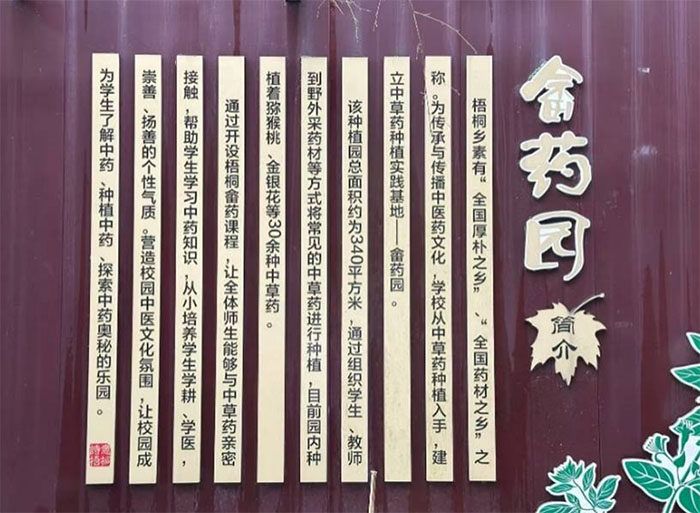 畲药园
简介
梧桐乡素有“全国厚朴之乡”、“全国药材之乡”之
称。为传承与传播中医药文化,学校从中草药种植入手,建
立中草药种植实践基地——畲药园。
该种植园总面积约为340平方米,通过组织学生、教师
到野外采药材等方式将常见的中草药进行种植,目前园内种
植着猕猴桃、金银花等30余种中草药。
通过开设梧桐畲药课程,让全体师生能够与中草药亲密
接触,帮助学生学习中药知识,从小培养学生学耕、学医,
崇善、扬善的个性气质。营造校园中医文化氛围,让校园成
为学生了解中药、种植中药、探索中药奥秘的乐园。